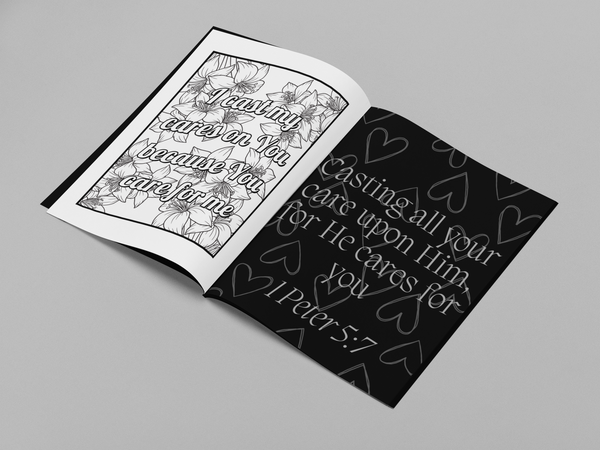 I cast my
cares on You
because You
care for me
Casting all your
care upon Him,
for He cares for
you
1 Peter 5:7